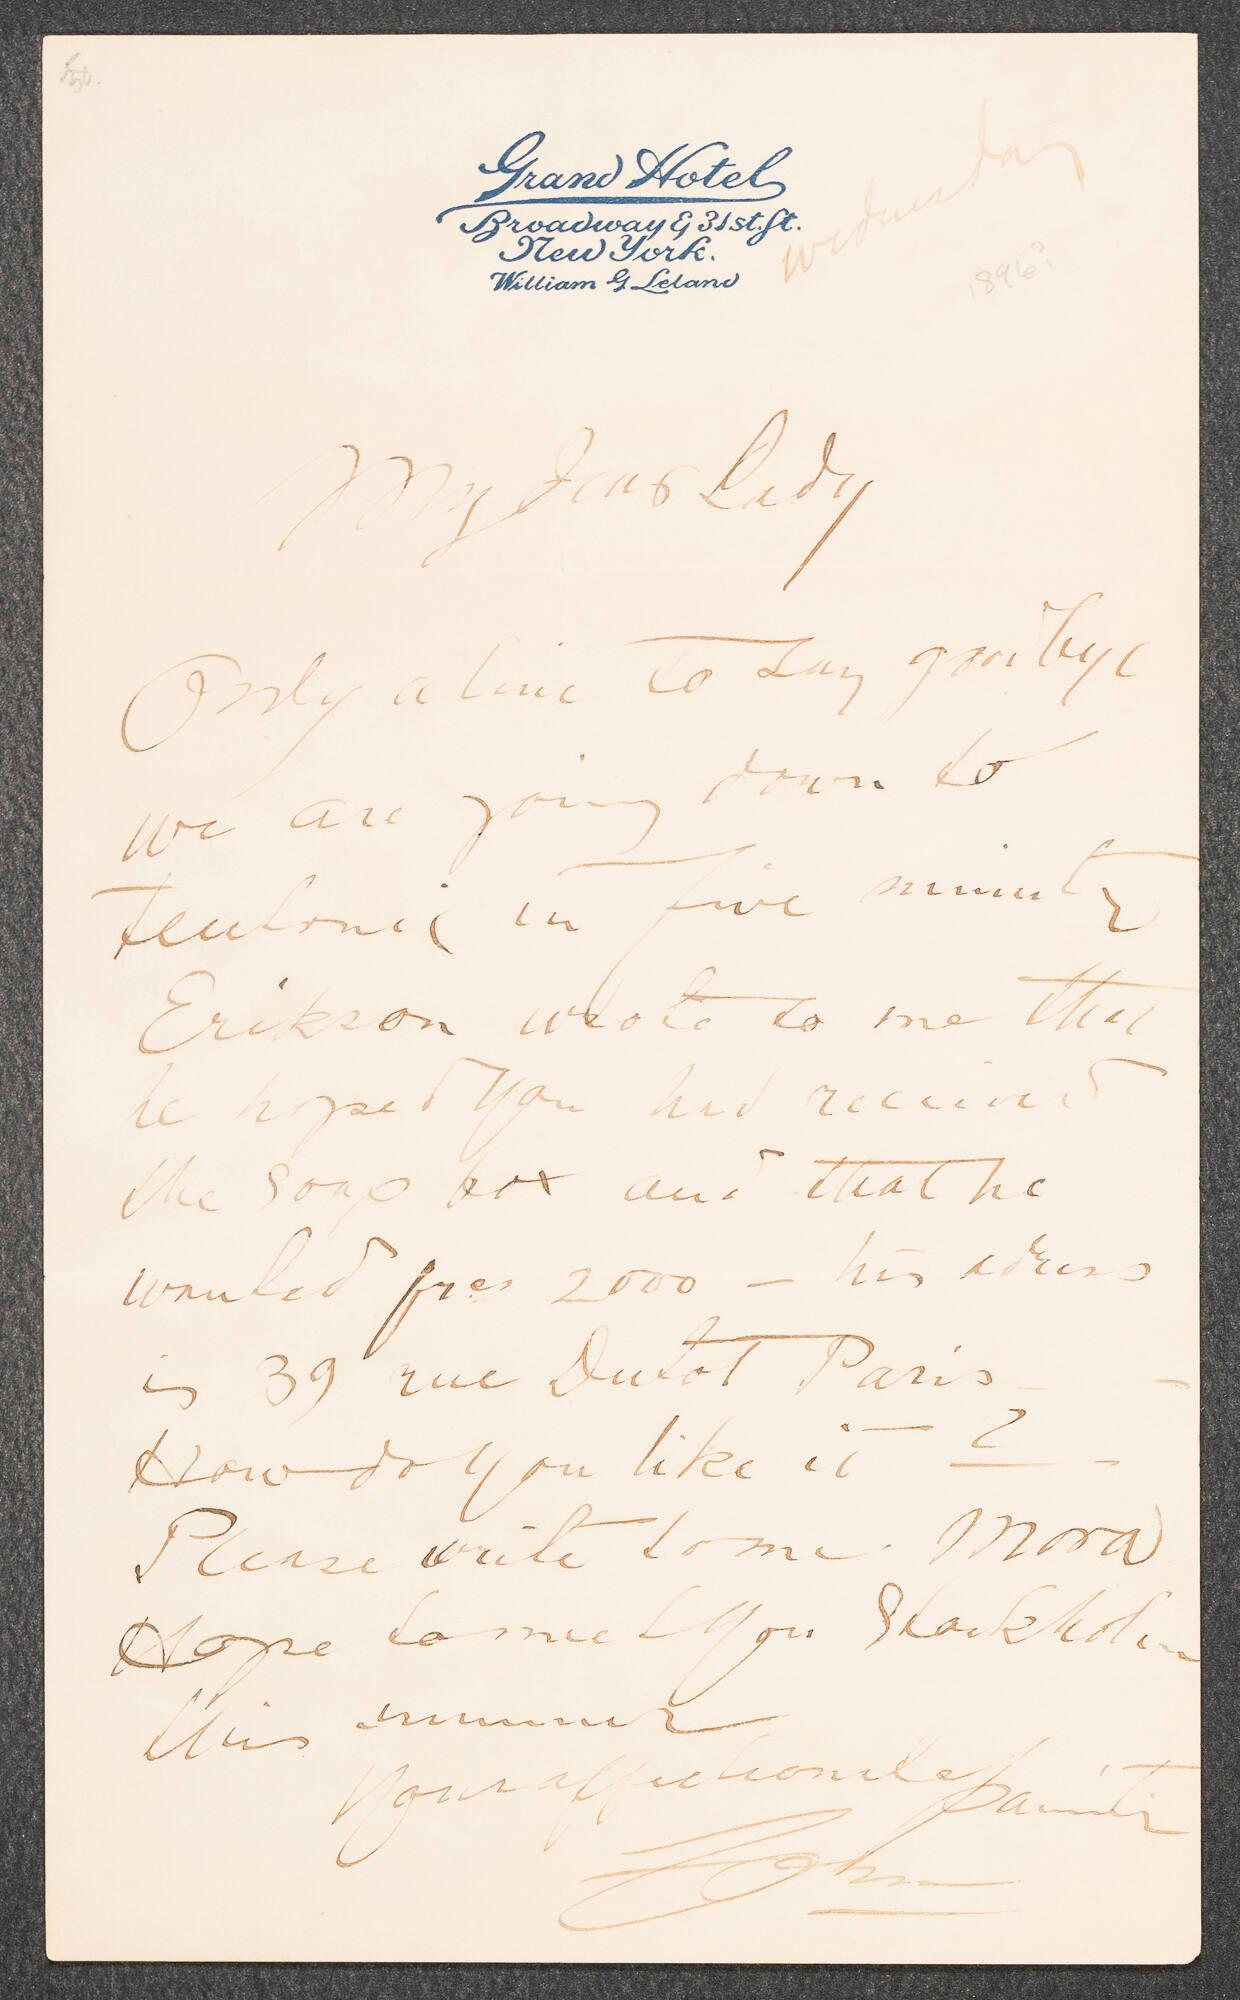 Grand Hotel
Broadway & 31st. St.
New York.
William G Leland
wednesday
1896?
My Dear Lady
Only a line to say goodbye
we are going down to
Teutonic in five minutes
Erikson wrote to me that
he hoped you had received
the soap box and that he
wanted frcs 2000 – his adress
is 39 rue Dutot Paris –
How do you like it ?
Please write to me Mora
Hope to meet you Stockholm
this summer
Your affectionate painter
Zorn